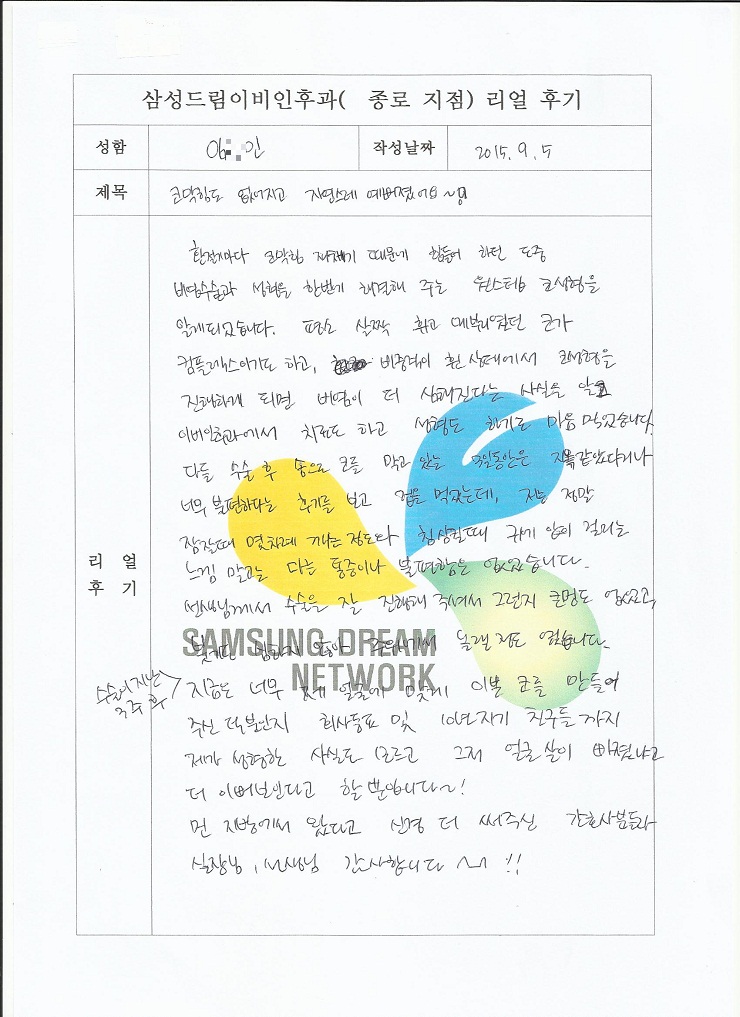 삼성드림이비인후과( 종로 지점) 리얼 후기
성함 이 인 작성날짜 2015. 9. 5
제목 코막힘도 없어지고 자연스레 예뻐졌어요~!
환절기마다 코막힘 때문에 힘들어 하던 도중
비염수술과 성형을 한번에 해결해 주는 원스텝 코성형을
알게되었습니다. 평소 살짝 휘고 매부리였던 코가
컴플렉스이기도 하고, 비중격이 휜 상태에서 코성형을
진행하게 되면 비염이 더 심해진다는 사실을 알고
이비인후과에서 치료도 하고 성형도 하기로 마음 먹었습니다.
다들 수술 후 솜으로 코를 막고 있는 동안은 지옥같았다거나
너무 불편하다는 후기를 보고 겁을 먹었는데, 저는 정말
잠잘때 몇차례 깨는 정도와 침삼킬때 귀가 같이 걸리는
느낌 말고는 다른 통증이나 불편함은 없었습니다.
선생님께서 수술을 잘 진행해 주셔서 그런지 큰멍도 없었고,
붓기도 심하지 않아 주위에서 놀랠 정도 였습니다.
수술이 지난
3주 후
지금은 너무 제 얼굴에 맞게 이쁜 코를 만들어
주신 덕분인지 회사동료 및 10년지기 친구들 까지
제가 성형한 사실도 모르고 그저 얼굴 살이 빠졌냐고
더 이뻐보인다고 할 뿐입니다~!
먼 지방에서 왔다고 신경 더 써주신 간호사분들과
실장님, 선생님 감사합니다 ^^ !!
리 얼
후 기
SAMSUNG DREAM
NETWORK